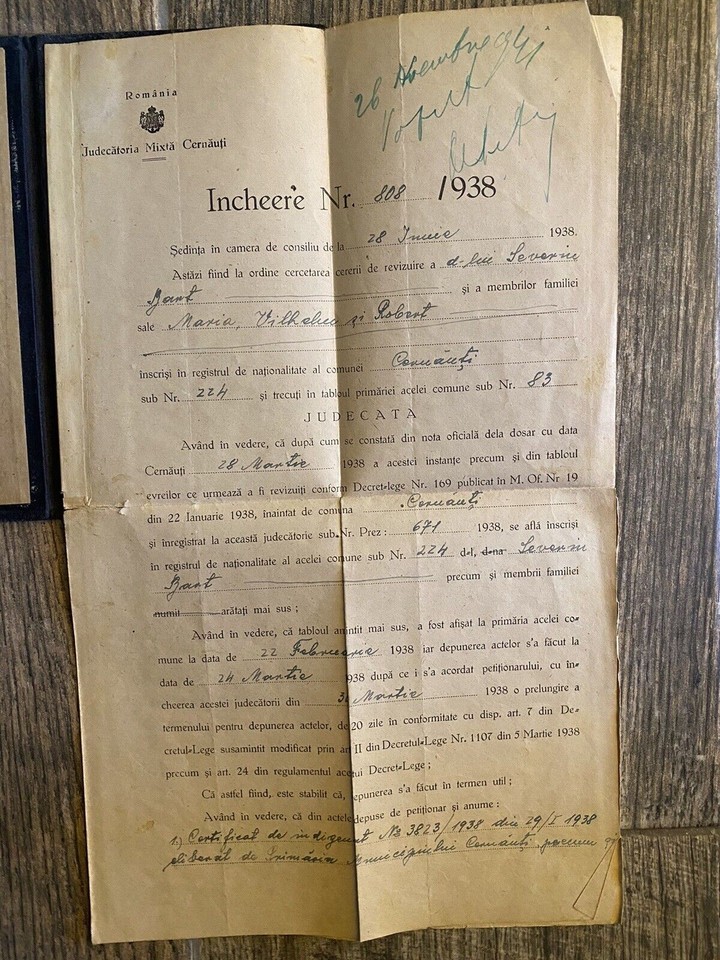 România
26 Noembrie 941
Judecătoria Mixtă Cernăuți
Incheere Nr. 808 /1938
Ședința în camera de consiliu de la 28 Iunie 1938.
Astăzi fiind la ordine cercetarea cererii de revizuire a d-lui Severin
Bart și a membrilor familiei
sale Maria, Vilhelm și Robert
înscriși în registrul de naționalitate al comunei Cernăuți
sub Nr. 224 și trecuți în tabloul primăriei acelei comune sub Nr. 83
JUDECATA
Având în vedere, că după cum se constată din nota oficială dela dosar cu data
Cernăuți 28 Martie 1938 a acestei instanțe precum și din tabloul
evreilor ce urmează a fi revizuiți conform Decret-lege Nr. 169 publicat în M. Of. Nr 19
din 22 Ianuarie 1938, înaintat de comuna Cernăuți
și înregistrat la această judecătorie sub Nr. Prez: 671 1938, se află înscriși
în registrul de naționalitate al acelei comune sub Nr. 224 d-l, d-na Severin
Bart precum și membrii familiei
numit arătați mai sus;
Având în vedere, că tabloul amintit mai sus, a fost afișat la primăria acelei co=
mune la data de 22 Februarie 1938 iar depunerea actelor s'a făcut la
data de 24 Martie 938 după ce i s'a acordat petiționarului, cu în=
cheerea acestei judecătorii din Martie 1938 o prelungire a
termenului pentru depunerea actelor, de 20 zile în conformitate cu disp. art. 7 din De=
cretul=Lege susamintit modificat prin ar II din Decretul=Lege Nr. 1107 din 5 Martie 1938
precum și art. 24 din regulamentul acetui Decret=Lege;
Că astfel fiind, este stabilit că, depunerea s'a făcut în termen util;
Având în vedere, că din actele depuse de petiționar și anume:
1.) Certificat de indigenat No 3823/1938 din 29/I 1938
eliberat de Primăria Municipiului Cernăuți, precum și